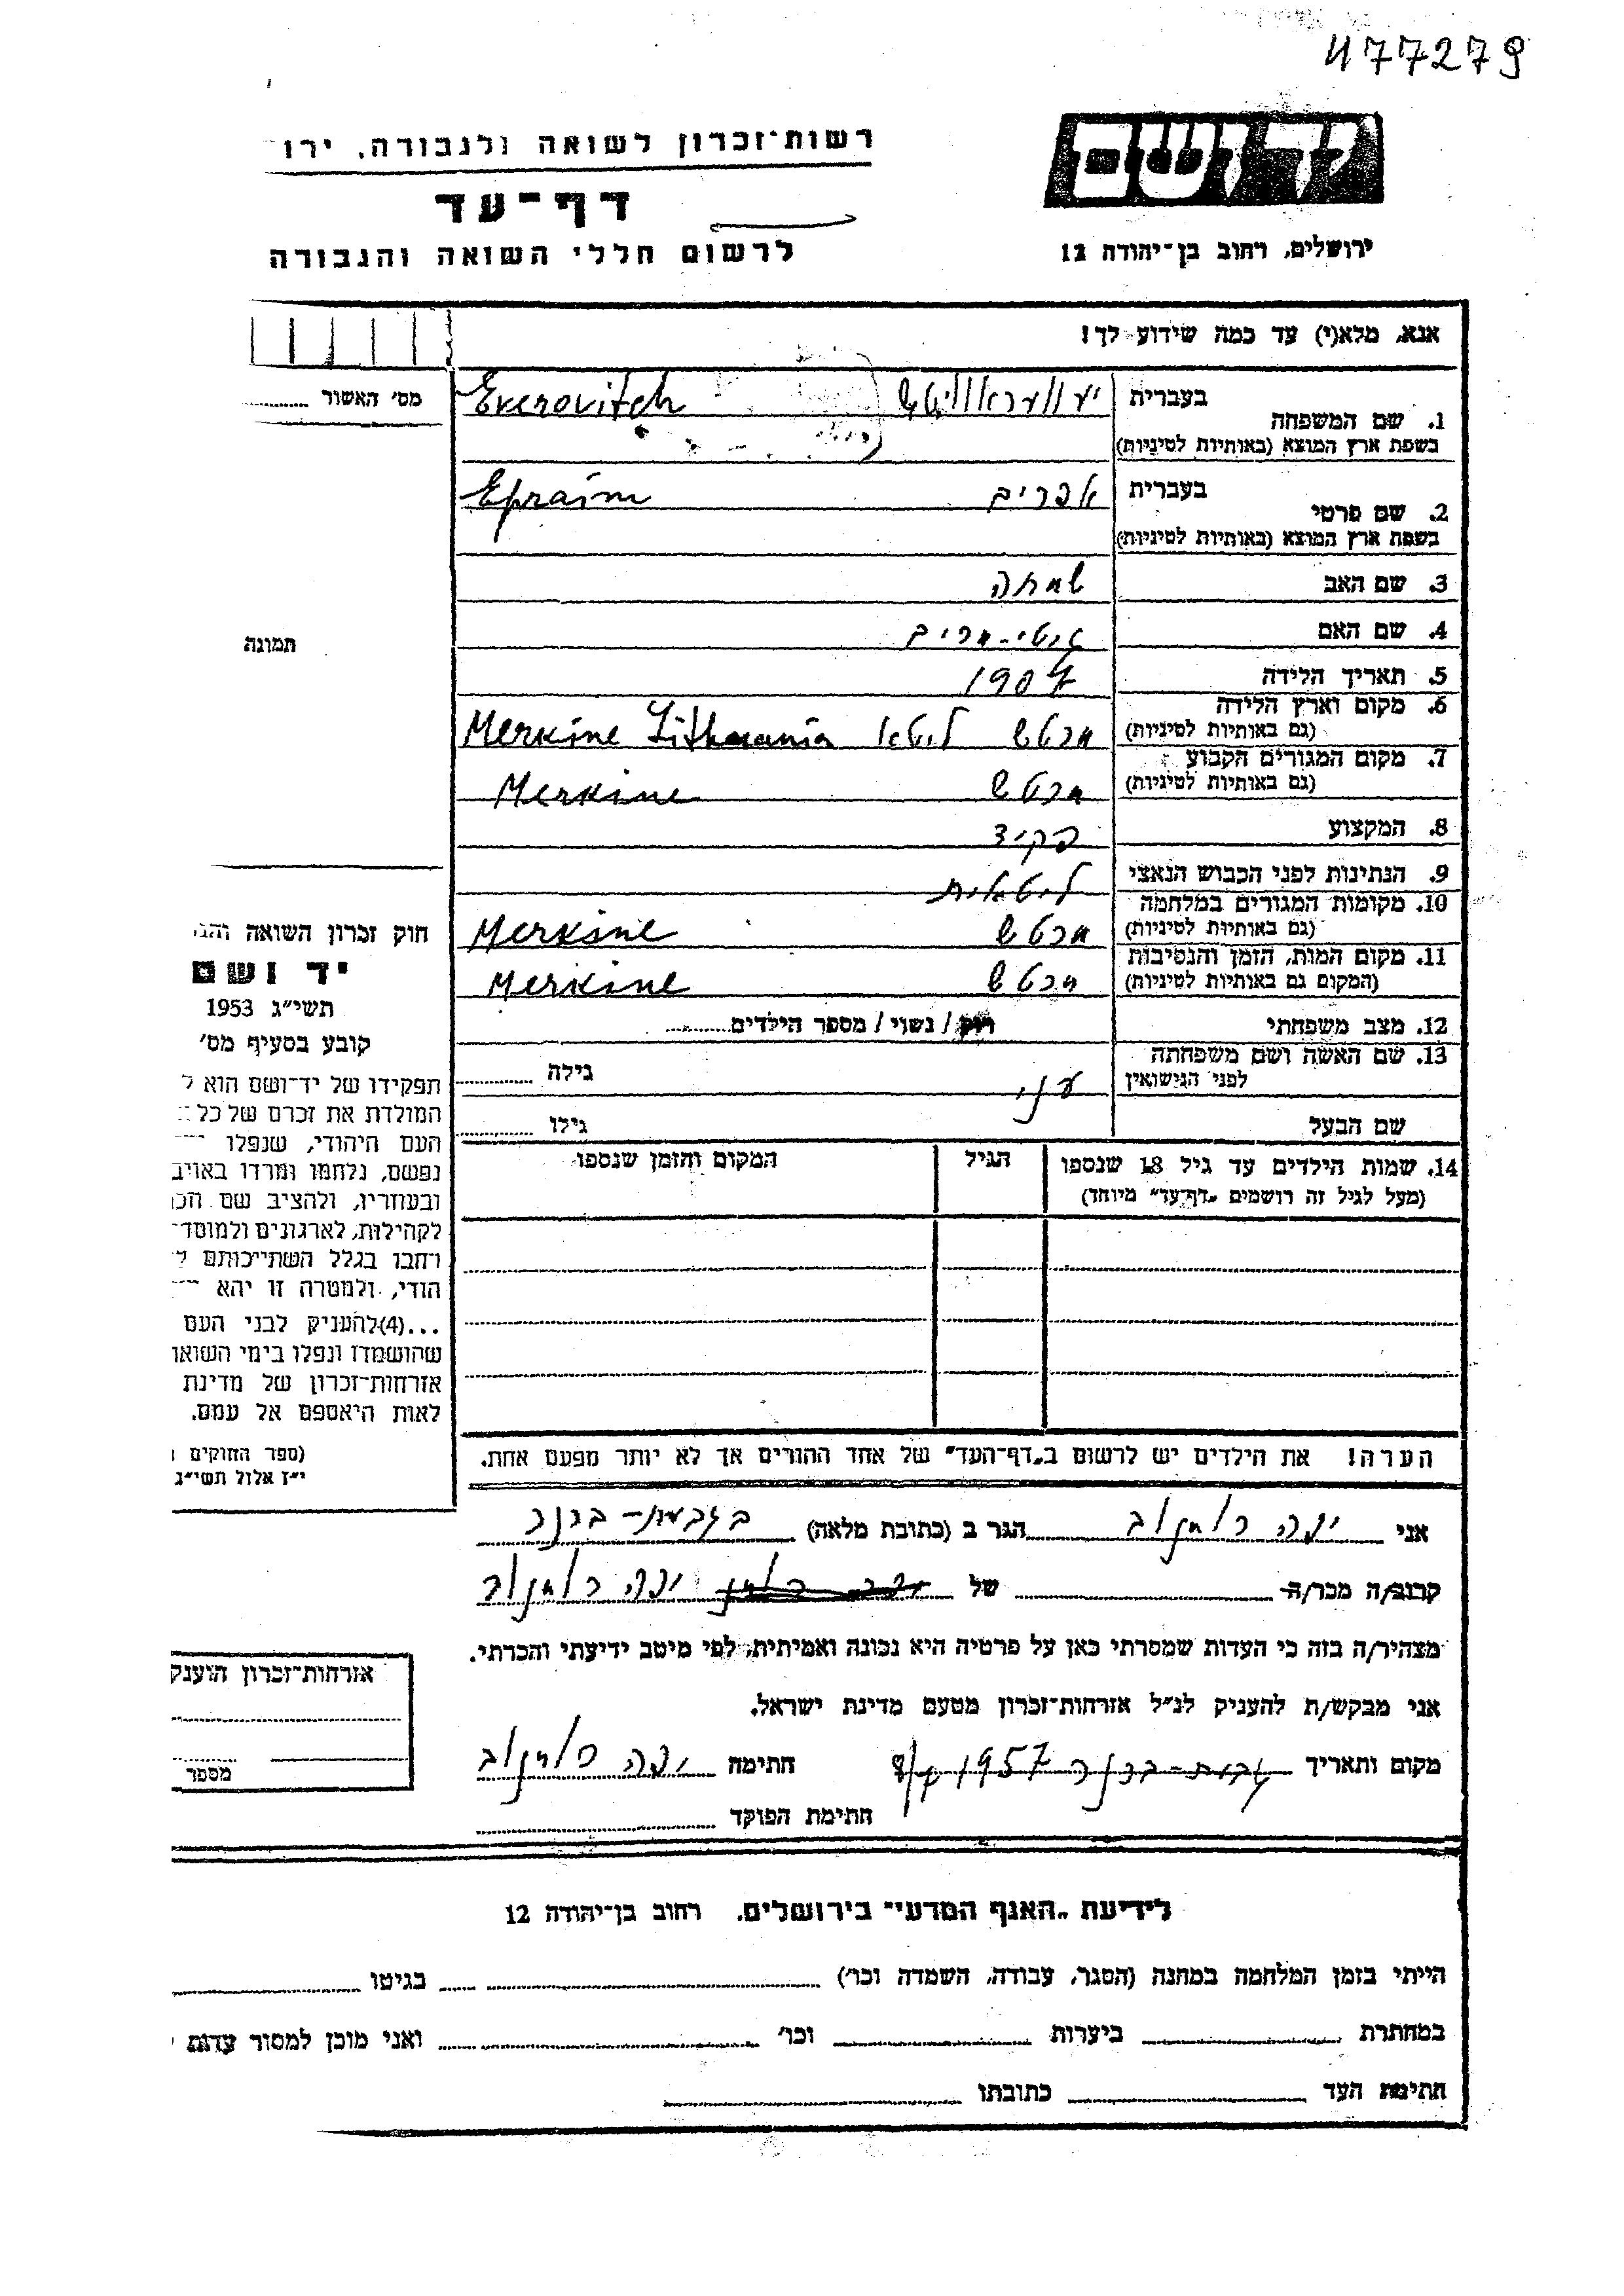 477279
יד ושם
רשות־זכרון לשואה ולגבורה, ירו
דף־עד
לרשום חללי השואה והגבורה
ירושלים, רחוב בן־יהודה 12
אנא, מלא(י) עד כמה שידוע לך!
מס' האשור
1. שם המשפחה בעברית Everovitch
בשפת ארץ המוצא (באותיות לטיניות)
2. שם פרטי בעברית אפרים Epraim
בשפת ארץ המוצא (באותיות לטיניות)
3. שם האב שמחה
4. שם האם גיטי-מרים
תמונה
5. תאריך הלידה 1907
6. מקום וארץ הלידה מרטש ליטא Merkine Lithuania
(גם באותיות לטיניות)
7. מקום המגורים הקבוע מרטש Merkine
(גם באותיות לטיניות)
8. המקצוע פקיד
9. הנתינות לפני הכבוש הנאצי ליטאית
10. מקומות המגורים במלחמה מרטש Merkine
(גם באותיות לטיניות)
11. מקום המות, הזמן והנסיבות מרטש Merkine
(המקום גם באותיות לטיניות)
12. מצב משפחתי רוק / נשוי / מספר הילדים
13. שם האשה ושם משפחתה גילה
לפני הנישואין
שם הבעל גילו
14. שמות הילדים עד גיל 18 שנספו הגיל המקום והזמן שנספו
(מעל לגיל זה רושמים „דף־עד" מיוחד)
חוק זכרון השואה והג
יד ושם
תשי"ג 1953
קובע בסעיף מס'
תפקידו של יד־ושם הוא ל
המולדת את זכרם של כל
העם היהודי, שנפלו
נפשם, נלחמו ומרדו באויב
ובעוזריו, ולהציב שם הכ
לקהילות, לארגונים ולמוסד
חרבו בגלל השתייכותם ל
הודי, ולמטרה זו יהא
...(4)להעניק לבני העם
שהושמדו ונפלו בימי השואו
אזרחות־זכרון של מדינת
לאות היאספם אל עמם.
(ספר החוקים
י"ז אלול תשי"ג
הערה! את הילדים יש לרשום ב„דף־העד" של אחד ההורים אך לא יותר מפעם אחת.
אני יפה הגר ב (כתובת מלאה) בגבעת-ברנר
קרוב/ה מכר/ה של יפה
מצהיר/ה בזה כי העדות שמסרתי כאן על פרטיה היא נכונה ואמיתית, לפי מיטב ידיעתי והכרתי.
אני מבקש/ת להעניק לנ"ל אזרחות־זכרון מטעם מדינת ישראל.
מקום ותאריך גבעת-ברנר 1957 חתימה יפה
חתימת הפוקד
אזרחות־זכרון הוענק
מספר
לידיעת „האגף המדעי" בירושלים, רחוב בן־יהודה 12
הייתי בזמן המלחמה במחנה (הסגר, עבודה, השמדה וכו') בגיטו
במחתרת ביערות וכו' ואני מוכן למסור עדות
חתימת העד כתובתו